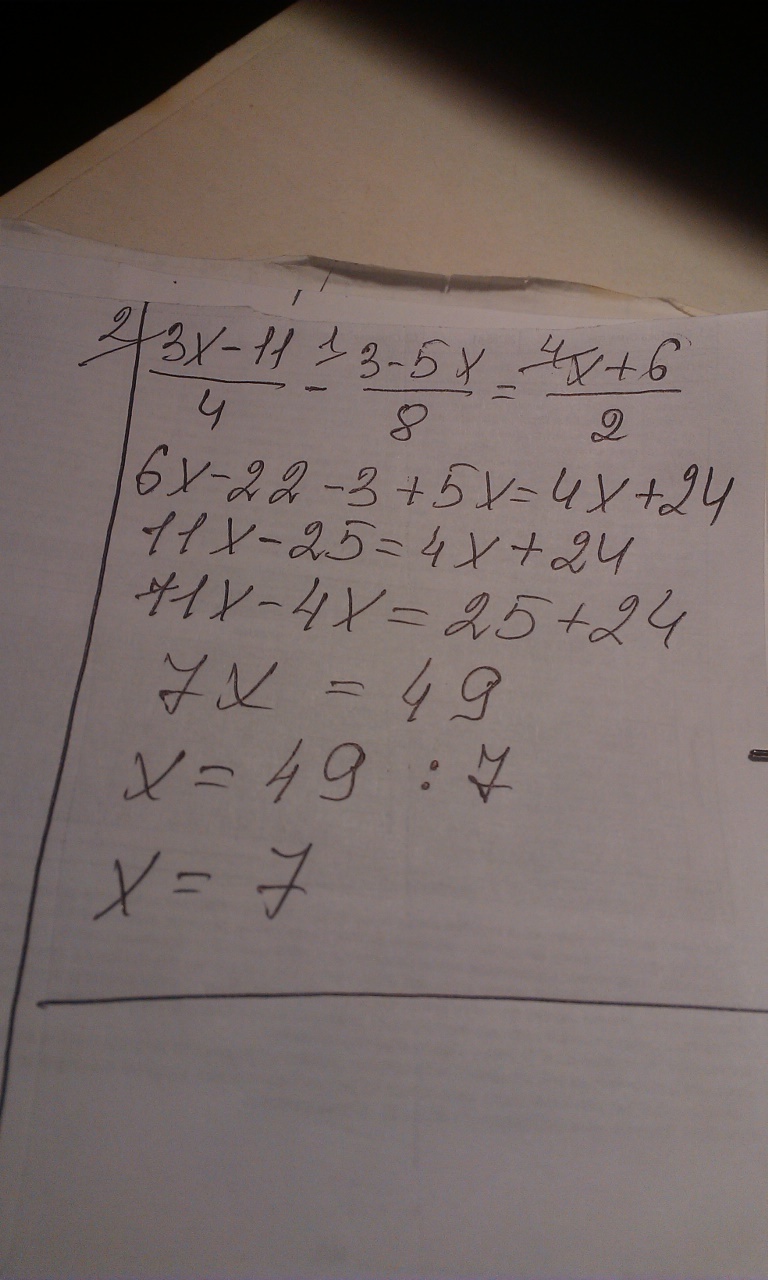 2/ 3x-11/4 - 1/ 3-5x/8 = 4/ x+6/2
6x-22-3+5x=4x+24
11x-25=4x+24
11x-4x=25+24
7x = 49
x=49 :7
x= 7